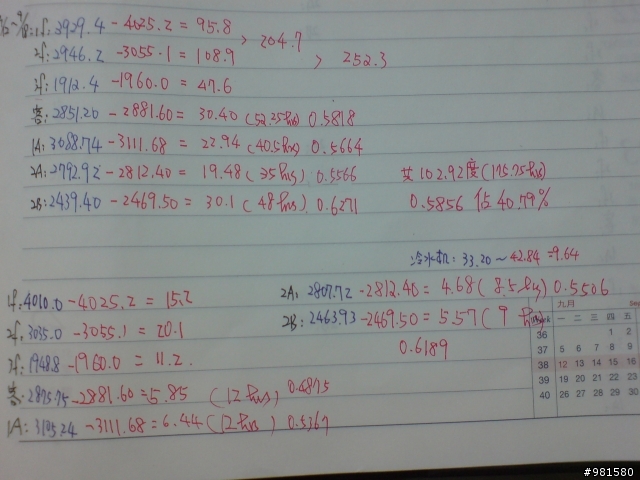 1f: 3929.4 - 4025.2 = 95.8 > 204.7
2f: 2946.2 - 3055.1 = 108.9 > 252.3
3f: 1912.4 - 1960.0 = 47.6
客: 2851.20 - 2881.60 = 30.40 (52.25hrs) 0.5818
1A: 3088.74 - 3111.68 = 22.94 (40.5hrs) 0.5664
2A: 2792.92 - 2812.40 = 19.48 (35hrs) 0.5566 共102.92度(175.75hrs)
2B: 2439.40 - 2469.50 = 30.1 (48hrs) 0.6271 0.5856 佔40.79%
冷水机: 33.20 ~ 42.84 = 9.64
1f: 4010.0 - 4025.2 = 15.2
2f: 3035.0 - 3055.1 = 20.1
3f: 1948.8 - 1960.0 = 11.2
客: 2875.75 - 2881.60 = 5.85 (12hrs) 0.4875
1A: 3105.24 - 3111.68 = 6.44 (12hrs) 0.5367
2A: 2807.72 - 2812.40 = 4.68 (8.5hrs) 0.5506
2B: 2463.93 - 2469.50 = 5.57 (9hrs)
0.6189
九月
一 二 三 四 五
36 1 2
37 5 6 7 8 9
38 12 13 14 15 16
39 19 20 21 22 23
40 26 27 28 29 30
#981580